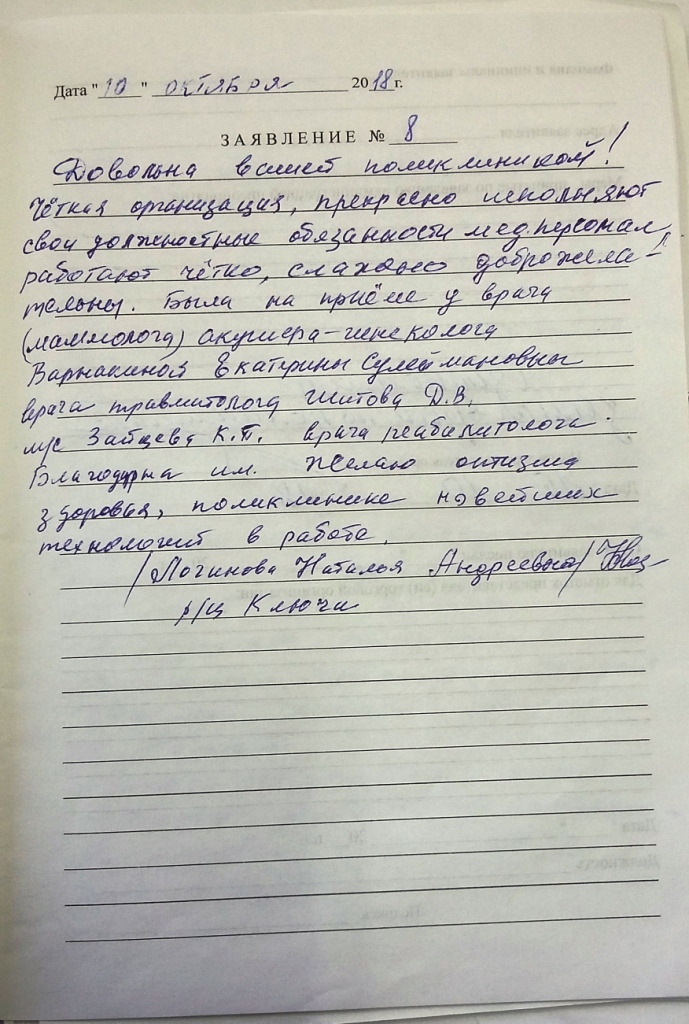 Дата "10" октября 2018 г.
ЗАЯВЛЕНИЕ № 8
Довольна вашей поликлиникой!
Чёткая организация, прекрасно исполняют
свои должностные обязанности мед.персонал,
работают чётко, слажено доброжела-
тельны. Была на приёме у врача
(маммолога) акушера-гинеколога
Екатерины Сулеймановны
врача травматолога Шитова Д.В.
Зайцева К.П. врача реабилитолога.
Благодарна им. Желаю
здоровья, поликлинике новейших
технологий в работе.
/Логинова Наталья Андреевна/
р/ц Ключи